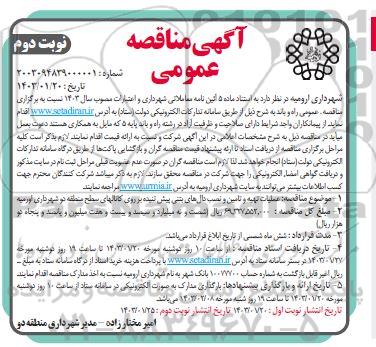 آگهی مناقصه
عمومی
نوبت دوم
شماره: ۲۰۰۳۰۹۴۸۳۹۰۰۰۰۰۱
تاریخ: ۱۴۰۳/۰۱/۲۰
شهرداری ارومیه در نظر دارد به استناد ماده ۵ آئین نامه معاملاتی شهرداری و اعتبارات مصوب سال ۱۴۰۳ نسبت به برگزاری
مناقصه عمومی راه و باند به شرح ذیل از طریق سامانه تدارکات الکترونیکی دولت (ستاد) به آدرس www.setadiran.ir اقدام
نماید. از پیمانکاران واجد شرایط دارای صلاحیت و ظرفیت آزاد در رشته راه و باند پایه ۵ که مایل به همکاری هستند دعوت بعمل
میآید در مناقصه ذیل به شرح مشخصات اعلامی در این آگهی شرکت و نسبت به ارائه قیمت اقدام نمایند. لازم بذکر است کلیه
مراحل برگزاری مناقصه از دریافت اسناد تا ارائه پیشنهاد قیمت مناقصه گران و بازگشایی پاکتها از طریق درگاه سامانه تدارکات
الکترونیکی دولت (ستاد) انجام خواهد شد. لذا لازم است مناقصه گران در صورت عدم عضویت قبلی مراحل ثبت نام در سایت مذکور
و دریافت گواهی امضا الکترونیکی را جهت شرکت در مناقصه محقق سازند. لازم به ذکر میباشد شرکت کنندگان محترم جهت
کسب اطلاعات بیشتر می‌توانند به سایت شهرداری ارومیه به آدرس www.urmia.ir مراجعه نمایند.
۱- موضوع مناقصه: عملیات تهیه و تأمین و نصب دال های بتنی پیش تنیده بر روی کانالهای سطح منطقه دو شهرداری ارومیه
۲- مبلغ کل مناقصه:
۳- مدت قرارداد: شش ماه شمسی از تاریخ ابلاغ قرارداد می‌باشد.
۴- تاریخ دریافت اسناد مناقصه: از ساعت ۱۰ روز دوشنبه مورخه ۱۴۰۳/۰۱/۲۰ تا ساعت ۱۹ روز دوشنبه مورخه
۱۴۰۳/۰۱/۲۷ در بستر سامانه ستاد به آدرس www.setadiran.ir با پرداخت هزینه خرید اسناد از درگاه سامانه ستاد به مبلغ
ریال غیر قابل بازگشت به شماره حساب ۱۰۰۷۷۷۰۰ بانک شهر به نام شهرداری ارومیه نسبت به اخذ مدارک مناقصه اقدام نمایند
۵- تاریخ ارائه و بارگذاری پیشنهادها: بارگذاری مدارک به صورت الکترونیکی در سامانه ستاد از ساعت ۱۰ روز دوشنبه
مورخه ۱۴۰۳/۰۱/۲۰ تا ساعت ۱۹ روز شنبه مورخه ۱۴۰۳/۰۲/۰۸ می‌باشد.
تاریخ انتشار نوبت اول: ۱۴۰۳/۰۱/۲۰ تاریخ انتشار نوبت دوم: ۱۴۰۳/۰۱/۲۵
امیر مختارزاده - مدیر شهرداری منطقه دو